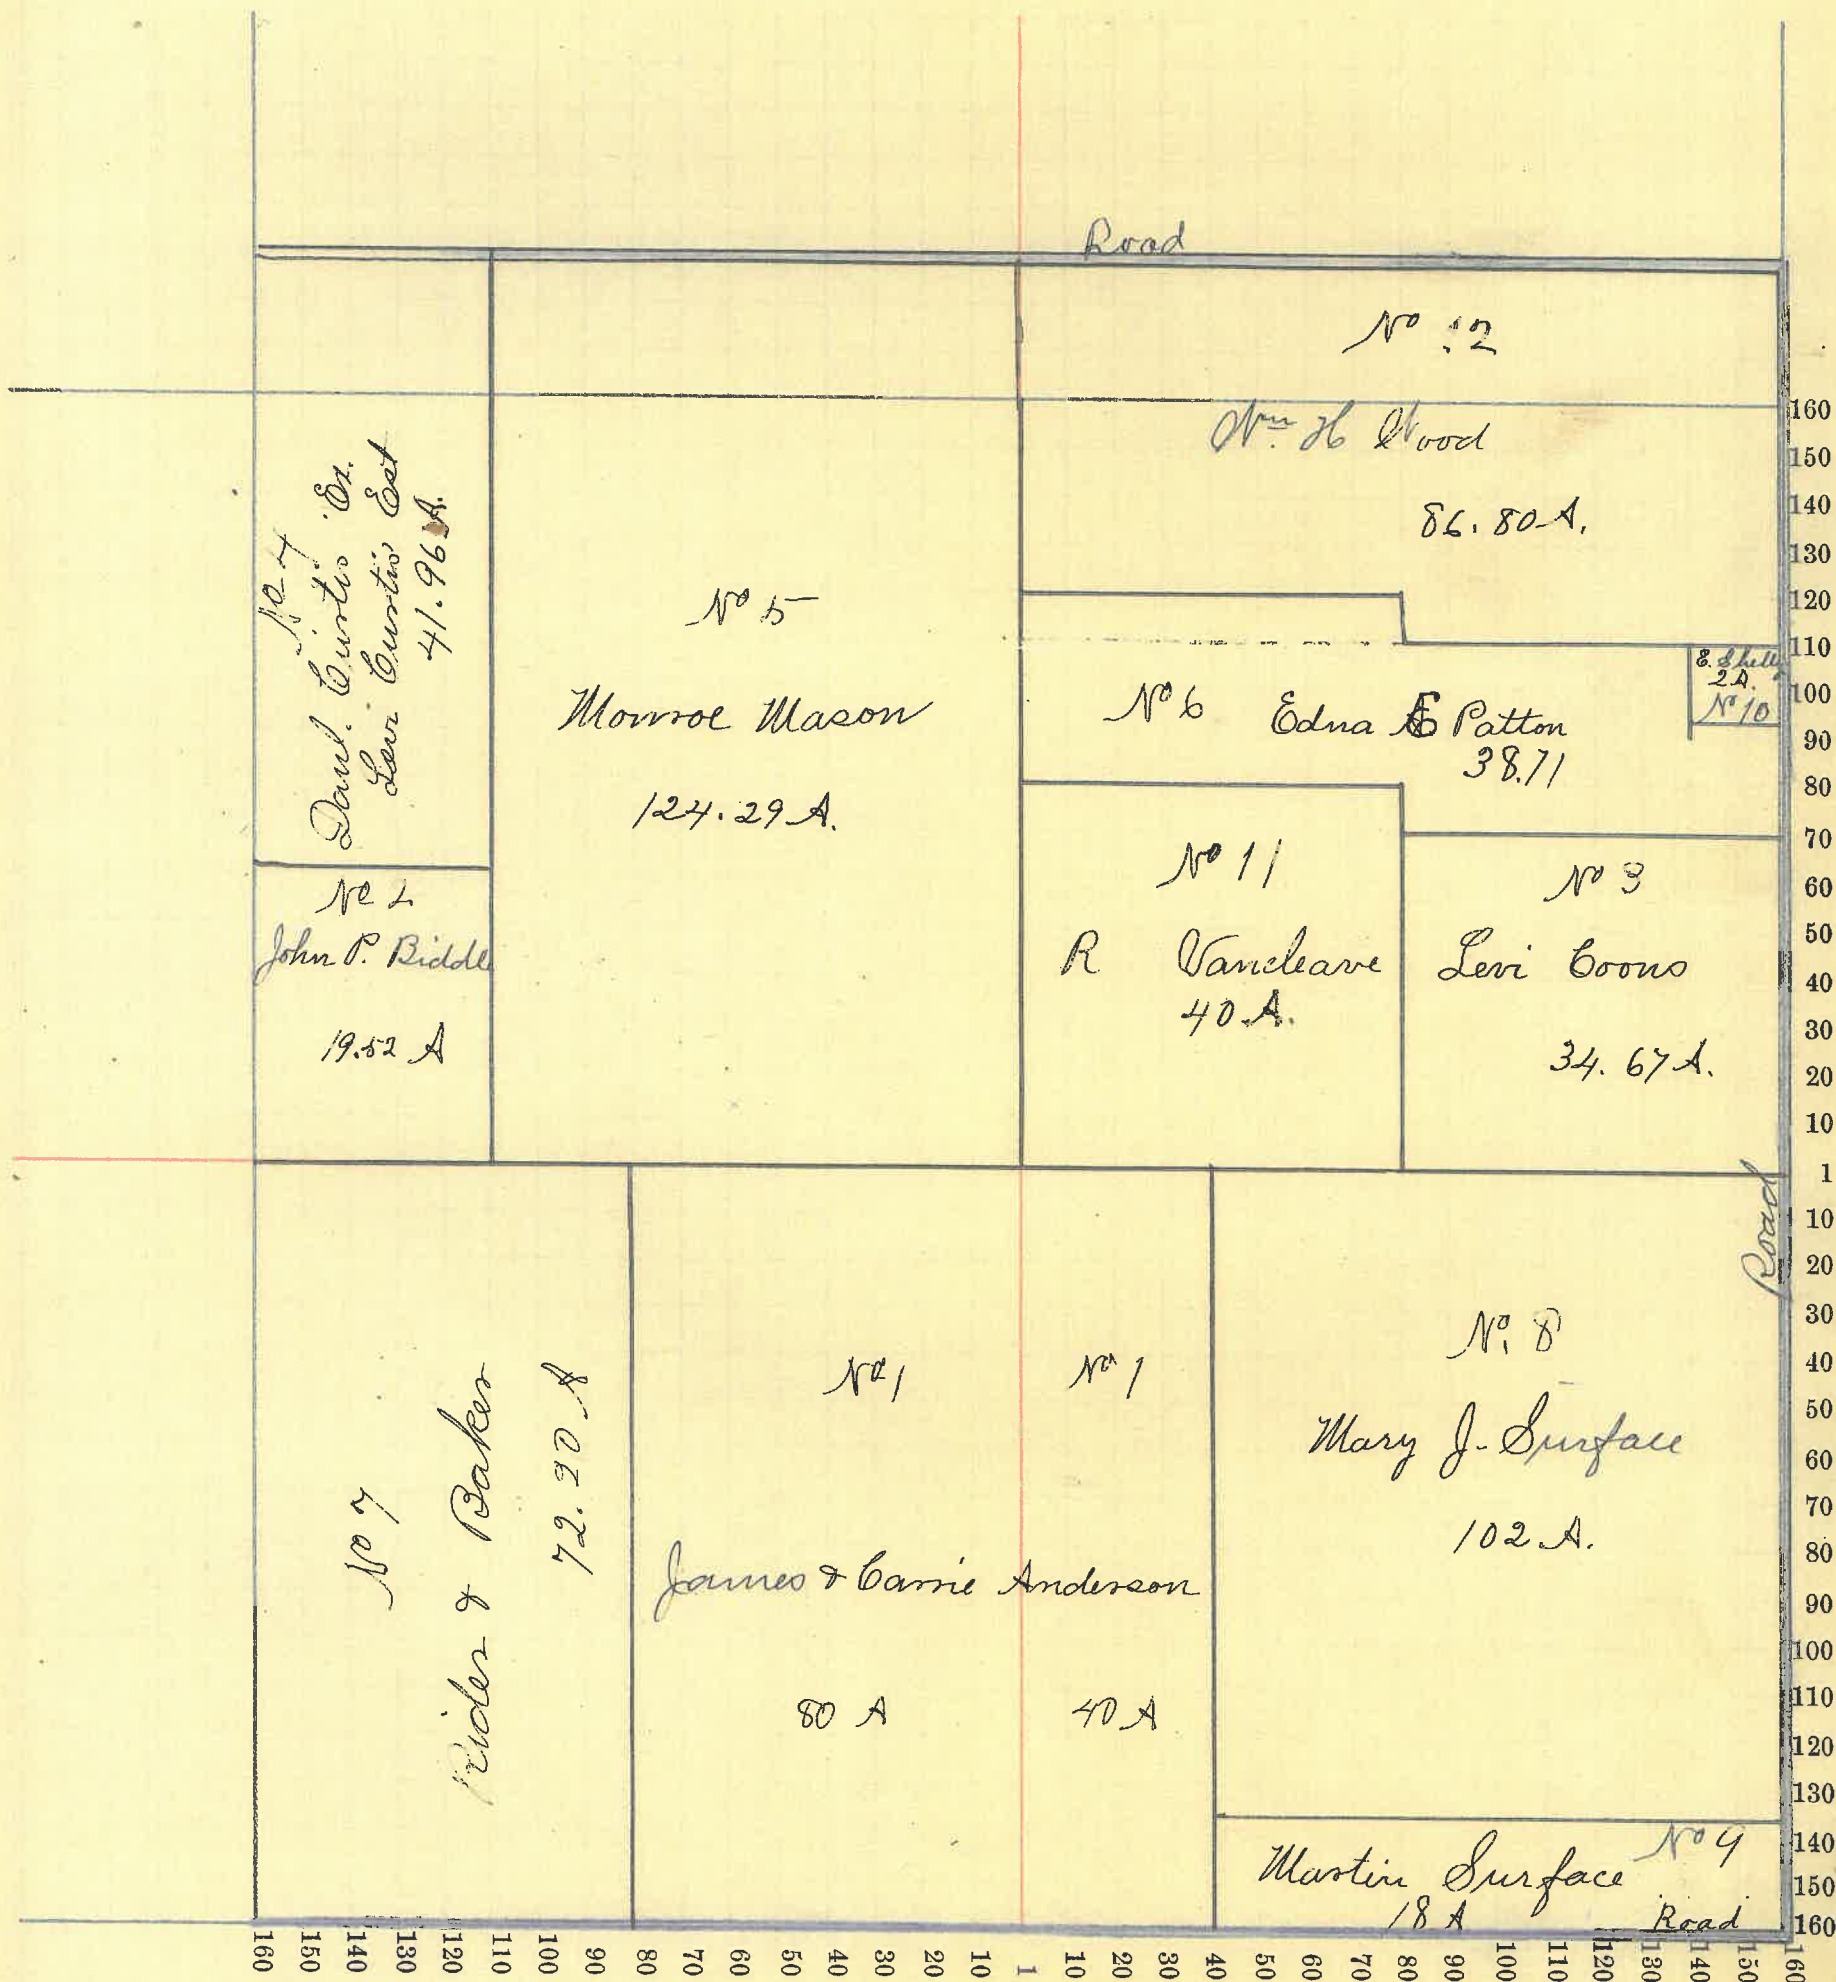 Road
No 12
Wm. H Wood
86.80 A.
No 4
Danl. Curtis Ex.
Levi Curtis Est
41.96 A.
No 5
Monroe Mason
124.29 A.
E. Shelly
2 A.
No 10
No 6 Edna E Patton
38.71
No 2
John P. Biddle
19.52 A
No 11
R Vancleave
40 A.
No 3
Levi Coons
34.67 A.
Road
No 7
Rider & Baker
72.20 A
No 1
No 1
James & Carrie Anderson
80 A
40 A
No. 8
Mary J. Surface
102 A.
No 9
Martin Surface
18 A
Road
160
150
140
130
120
110
100
90
80
70
60
50
40
30
20
10
1
10
20
30
40
50
60
70
80
90
100
110
120
130
140
150
160
160 150 140 130 120 110 100 90 80 70 60 50 40 30 20 10 1 10 20 30 40 50 60 70 80 90 100 110 120 130 140 150 160